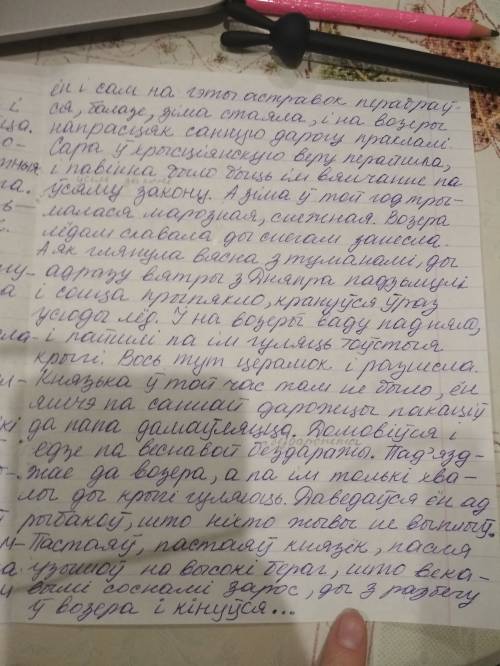 ён і сам на гэты астравок перабраў-
ся, балазе, зіма стаяла, і на возеры
напрасцяк санную дарогу праклалі
Сара ў хрысціянскую веру перайшла,
і павінна было быць ім вянчанне па
ўсяму закону. А зіма ў той год тры-
малася марозная, снежная. Возера
лёдам скавала ды снегам занесла.
А як глянула вясна з туманамі, ды
адразу вятры з Дняпра падзьмулі
і сонца прыпякло, крануўся ўраз
усюды лёд. І на возеры ваду падняло,
і пайшлі па ім гуляць тоўстыя
крыгі. Вось тут церамок і разнесла.
Князька ў той час там не было, ён
яшчэ па саннай дарожцы пакаціў
да папа дамаўляцца. Дамовіўся і
едзе па веснавой бездаражы. Пад'язд-
бездарожніца
жае да возера, а па ім толькі хва-
лы ды крыгі гуляюць. Даведаўся ён ад
рыбакоў, што ніхто жывы не выплыў.
Пастаяў, пастаяў князёк, пасля
узышоў на высокі бераг, што века-
вымі соснамі зарос, ды з разбегу
ў возера і кінуўся...
і
ца.
о-
жныя
га.
ь-
ну-
а
ла-
кі
м-
ва